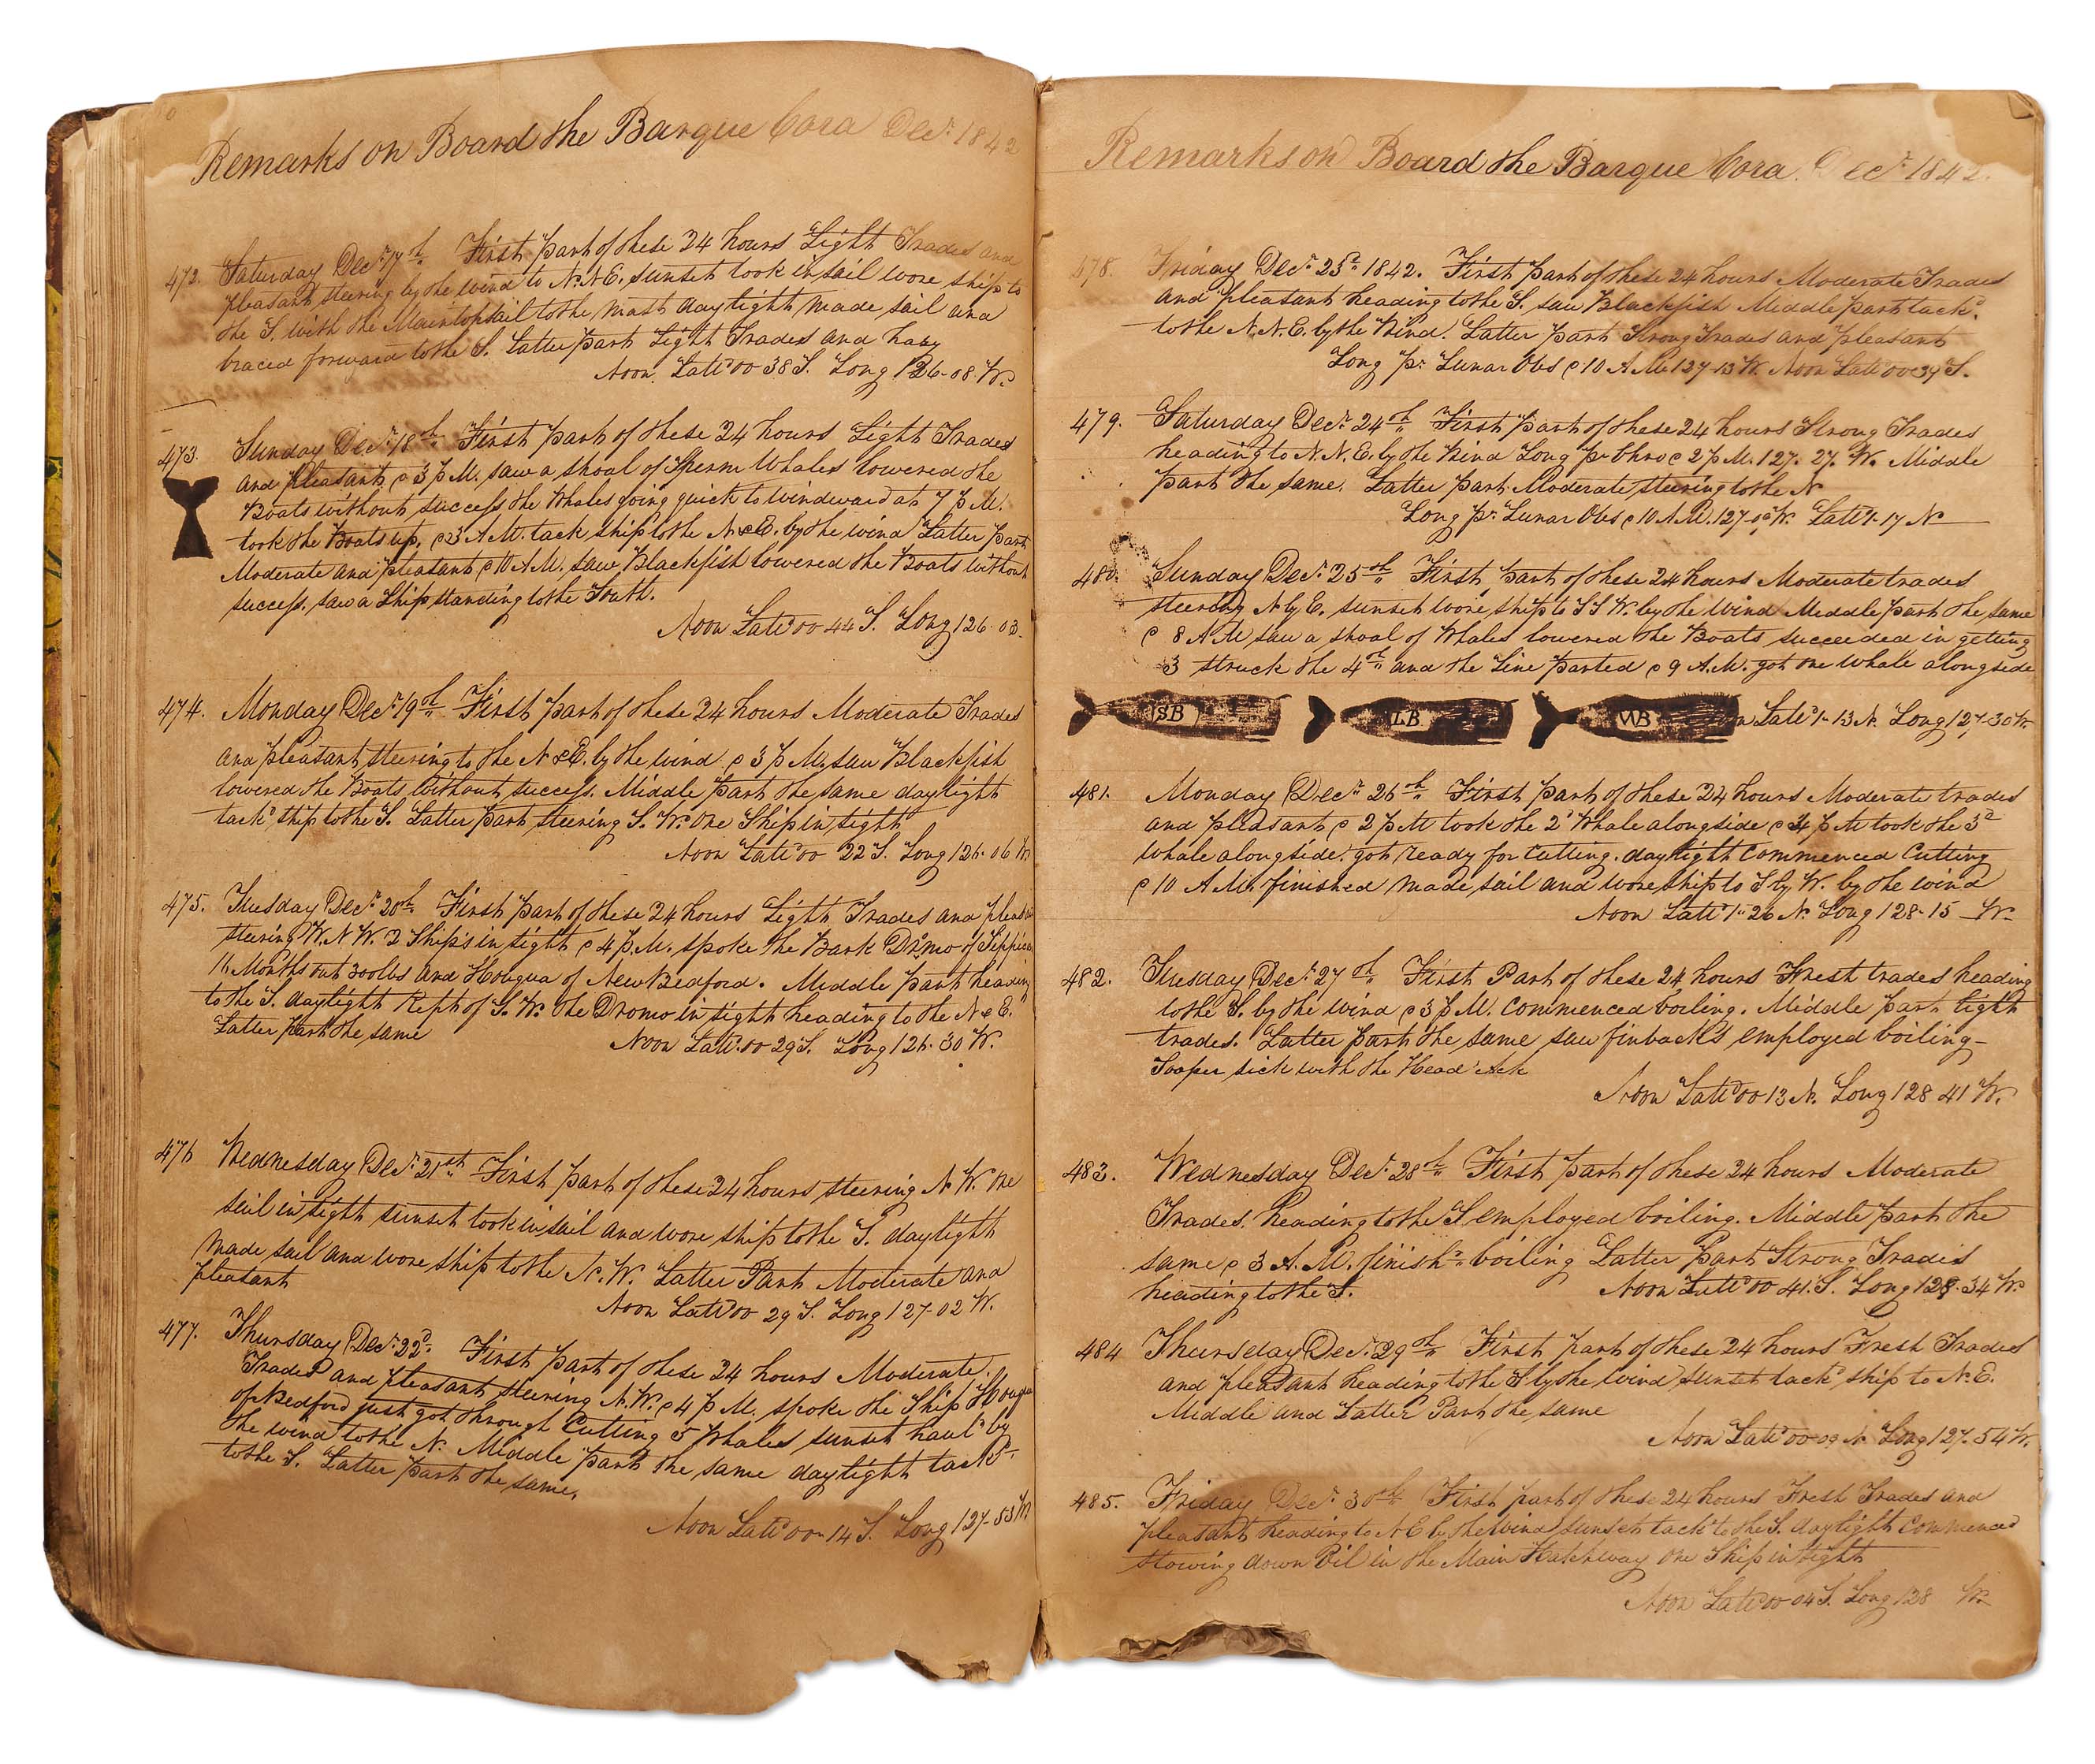 Remarks on Board the Barque Cora Decr 1842
472. Saturday Decr 17th First part of these 24 hours Light Trades and
pleasant steering by the wind to N.N.E. sunset took in sail wore ship to
the S. with the Maintopsail to the mast daylight made sail and
braced forward to the S. Latter part Light Trades and hazy
Noon Latd 00 38 S. Long 126-08 W.
473. Sunday Decr 18th First part of these 24 hours Light Trades
and pleasant @ 3 p M. saw a shoal of Sperm Whales lowered the
Boats without success the Whales going quick to windward at 7 p M.
took the Boats up. @ 3 A M. tack ship to the N & E. by the wind Latter part
Moderate and pleasant @ 10 A M. saw Blackfish lowered the Boats without
success. saw a Ship standing to the South.
Noon Latd 00 44 S. Long 126-03
474. Monday Decr 19th First part of these 24 hours Moderate Trades
and pleasant steering to the N & E. by the wind @ 3 p M. saw Blackfish
lowered the Boats without success. Middle part the same daylight
tackd ship to the S. Latter part steering S. W. one Ship in sight
Noon Latd 00 22 S. Long 126-06 W
475. Tuesday Decr 20th First part of these 24 hours Light Trades and pleasant
steering W. N W. 2 Ships in sight @ 4 p.M. spoke the Bark Dromo of Sippican
11 Months out 300lbs and Houqua of New Bedford. Middle part heading
to the S. daylight Kept of S. W. the Dromo in sight heading to the N & E.
Latter part the same
Noon Latd 00 29 S. Long 126-30 W.
476 Wednesday Decr 21st First part of these 24 hours steering N W. one
sail in sight sunset took in sail and wore ship to the S. daylight
made sail and wore ship to the N. W. Latter Part Moderate and
pleasant
Noon Latd 00 29 S. Long 127-02 W.
477. Thursday Decr 22d First part of these 24 hours Moderate
Trades and pleasant steering N. W. @ 4 p M. spoke the Ship Houqua
of N Bedford just got through Cutting 5 Whales, sunset hauld by
the wind to the N. Middle part the same daylight tackd
to the S. Latter part the same.
Noon Latd 00-14 S. Long 127-53 W
Remarks on Board the Barque Cora. Decr 1842.
478. Friday Decr 23d 1842. First part of these 24 hours Moderate Trades
and pleasant heading to the S. saw Blackfish Middle part tackd
to the N.N.E. by the Wind. Latter part Strong Trades and pleasant
Long pr Lunar Obs @ 10 A M. 127-13 W Noon Latd 00 34 S.
479. Saturday Decr 24th First part of these 24 hours Strong Trades
heading to N.N.E. by the Wind Long pr Chro @ 2 p M. 127-27 W. Middle
part the same. Latter part Moderate steering to the N
Long pr Lunar Obs @ 10 A.M. 127-02 W. Latd 1-17 N
480. Sunday Decr 25th First part of these 24 hours Moderate trades
steering N by E. sunset wore ship to S S W. by the wind Middle part the same
@ 8 A M saw a shoal of Whales lowered the Boats succeeded in getting
3 struck the 4th and the Line parted @ 9 A.M. got one whale alongside
SB LB WB Noon Latd 1-13 N. Long 127-30 W.
481. Monday Decr 26th First part of these 24 hours Moderate trades
and pleasant @ 2 p M took the 2d Whale alongside @ 4 p M took the 3d
whale alongside. got ready for Cutting. daylight Commenced Cutting
@ 10 A M. finished made sail and wore ship to S by W. by the wind
Noon Latd 1-26 N. Long 128-15 W
482. Tuesday Decr 27th First Part of these 24 hours Fresh trades heading
to the S. by the wind @ 3 p M. Commenced boiling. Middle part light
trades. Latter part the same saw finbacks employed boiling
Cooper sick with the Head Ack
Noon Latd 00 13 N. Long 128 41 W.
483. Wednesday Decr 28th First part of these 24 hours Moderate
Trades. heading to the S employed boiling. Middle part the
same @ 3 A. M. finishd boiling Latter part Strong Trades
heading to the S.
Noon Latd 00 41 S. Long 128-34 W.
484 Thursday Decr 29th First part of these 24 hours Fresh Trades
and pleasant heading to the S by the wind sunset tackd ship to N. E.
Middle and Latter Part the same
Noon Latd 00-09 N Long 127-54 W.
485. Friday Decr 30th First part of these 24 hours Fresh Trades and
pleasant heading to N E by the wind sunset tackd to the S. daylight Commenced
stowing down Oil in the Main Hatchway one Ship in sight
Noon Latd 00-04 S. Long 128 W.